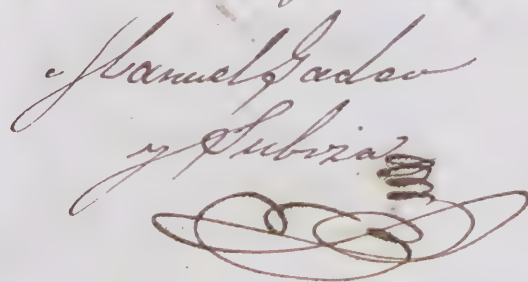 Manuel Gadeo
y Subiza